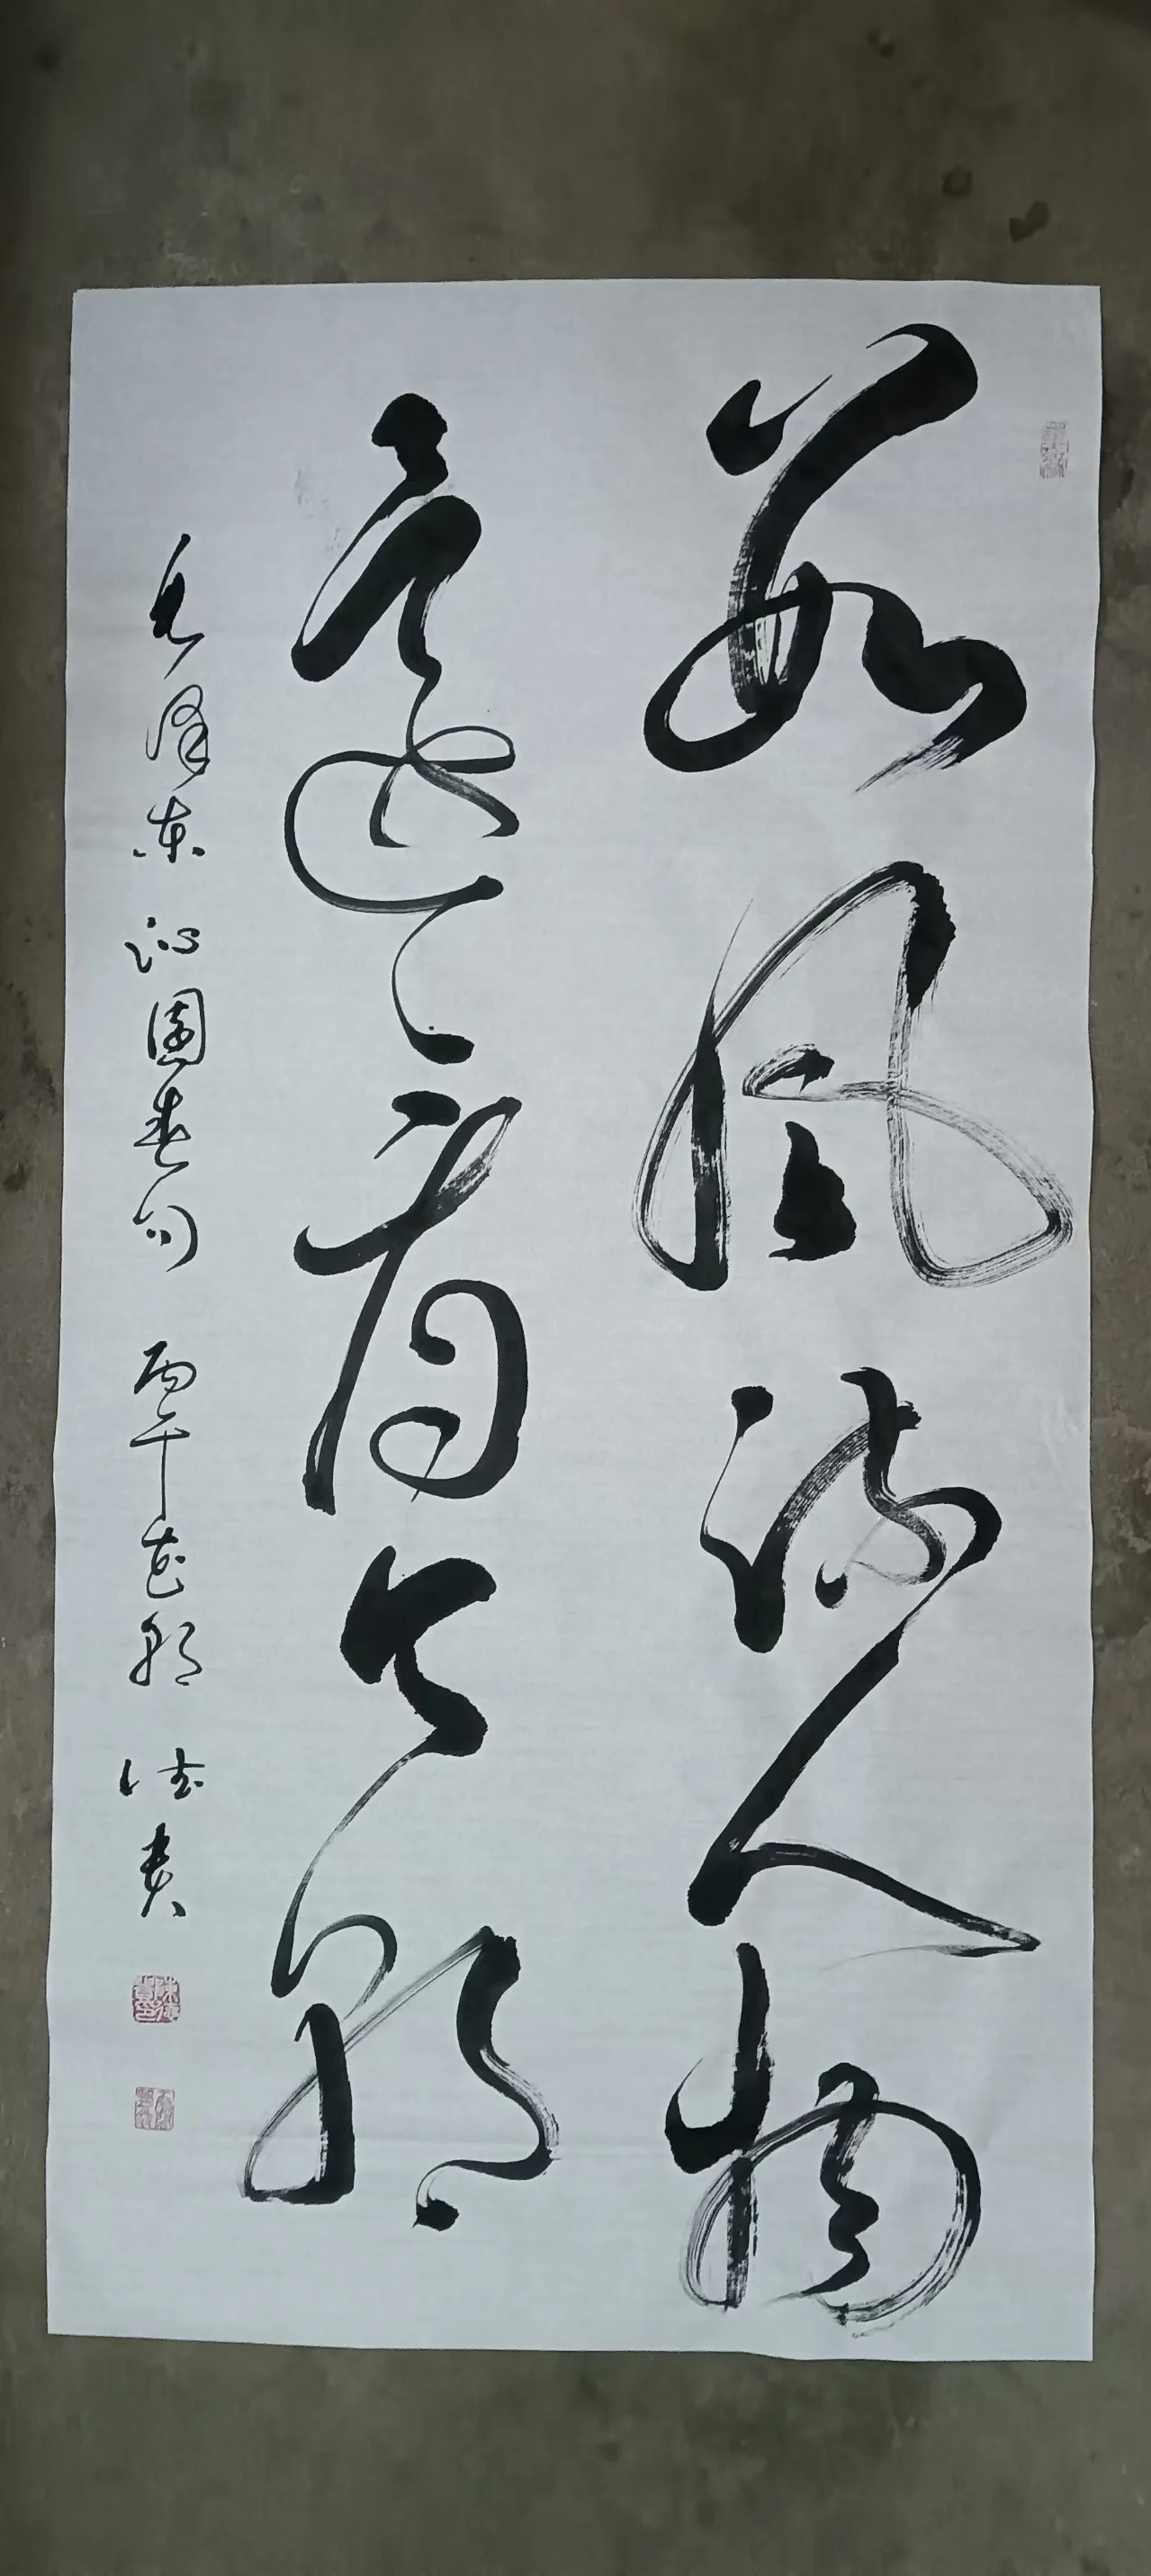 数风流人物
还看今朝
毛泽东沁园春句 丙午花朝 德贵